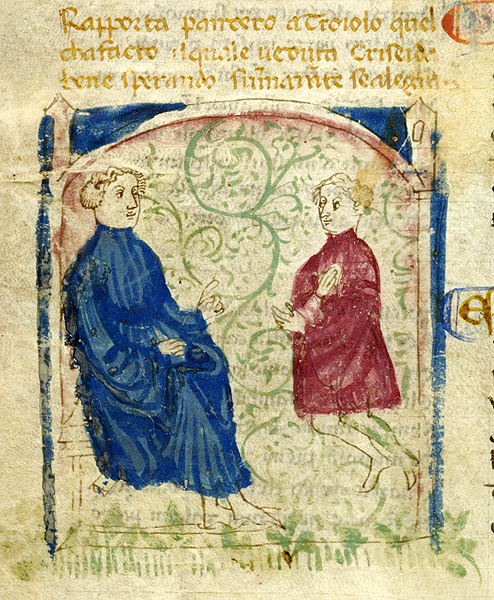 Rapporta pancero a Troiolo quel
cha facto il quale veduta Criseida
bene sperando summamte se alegra